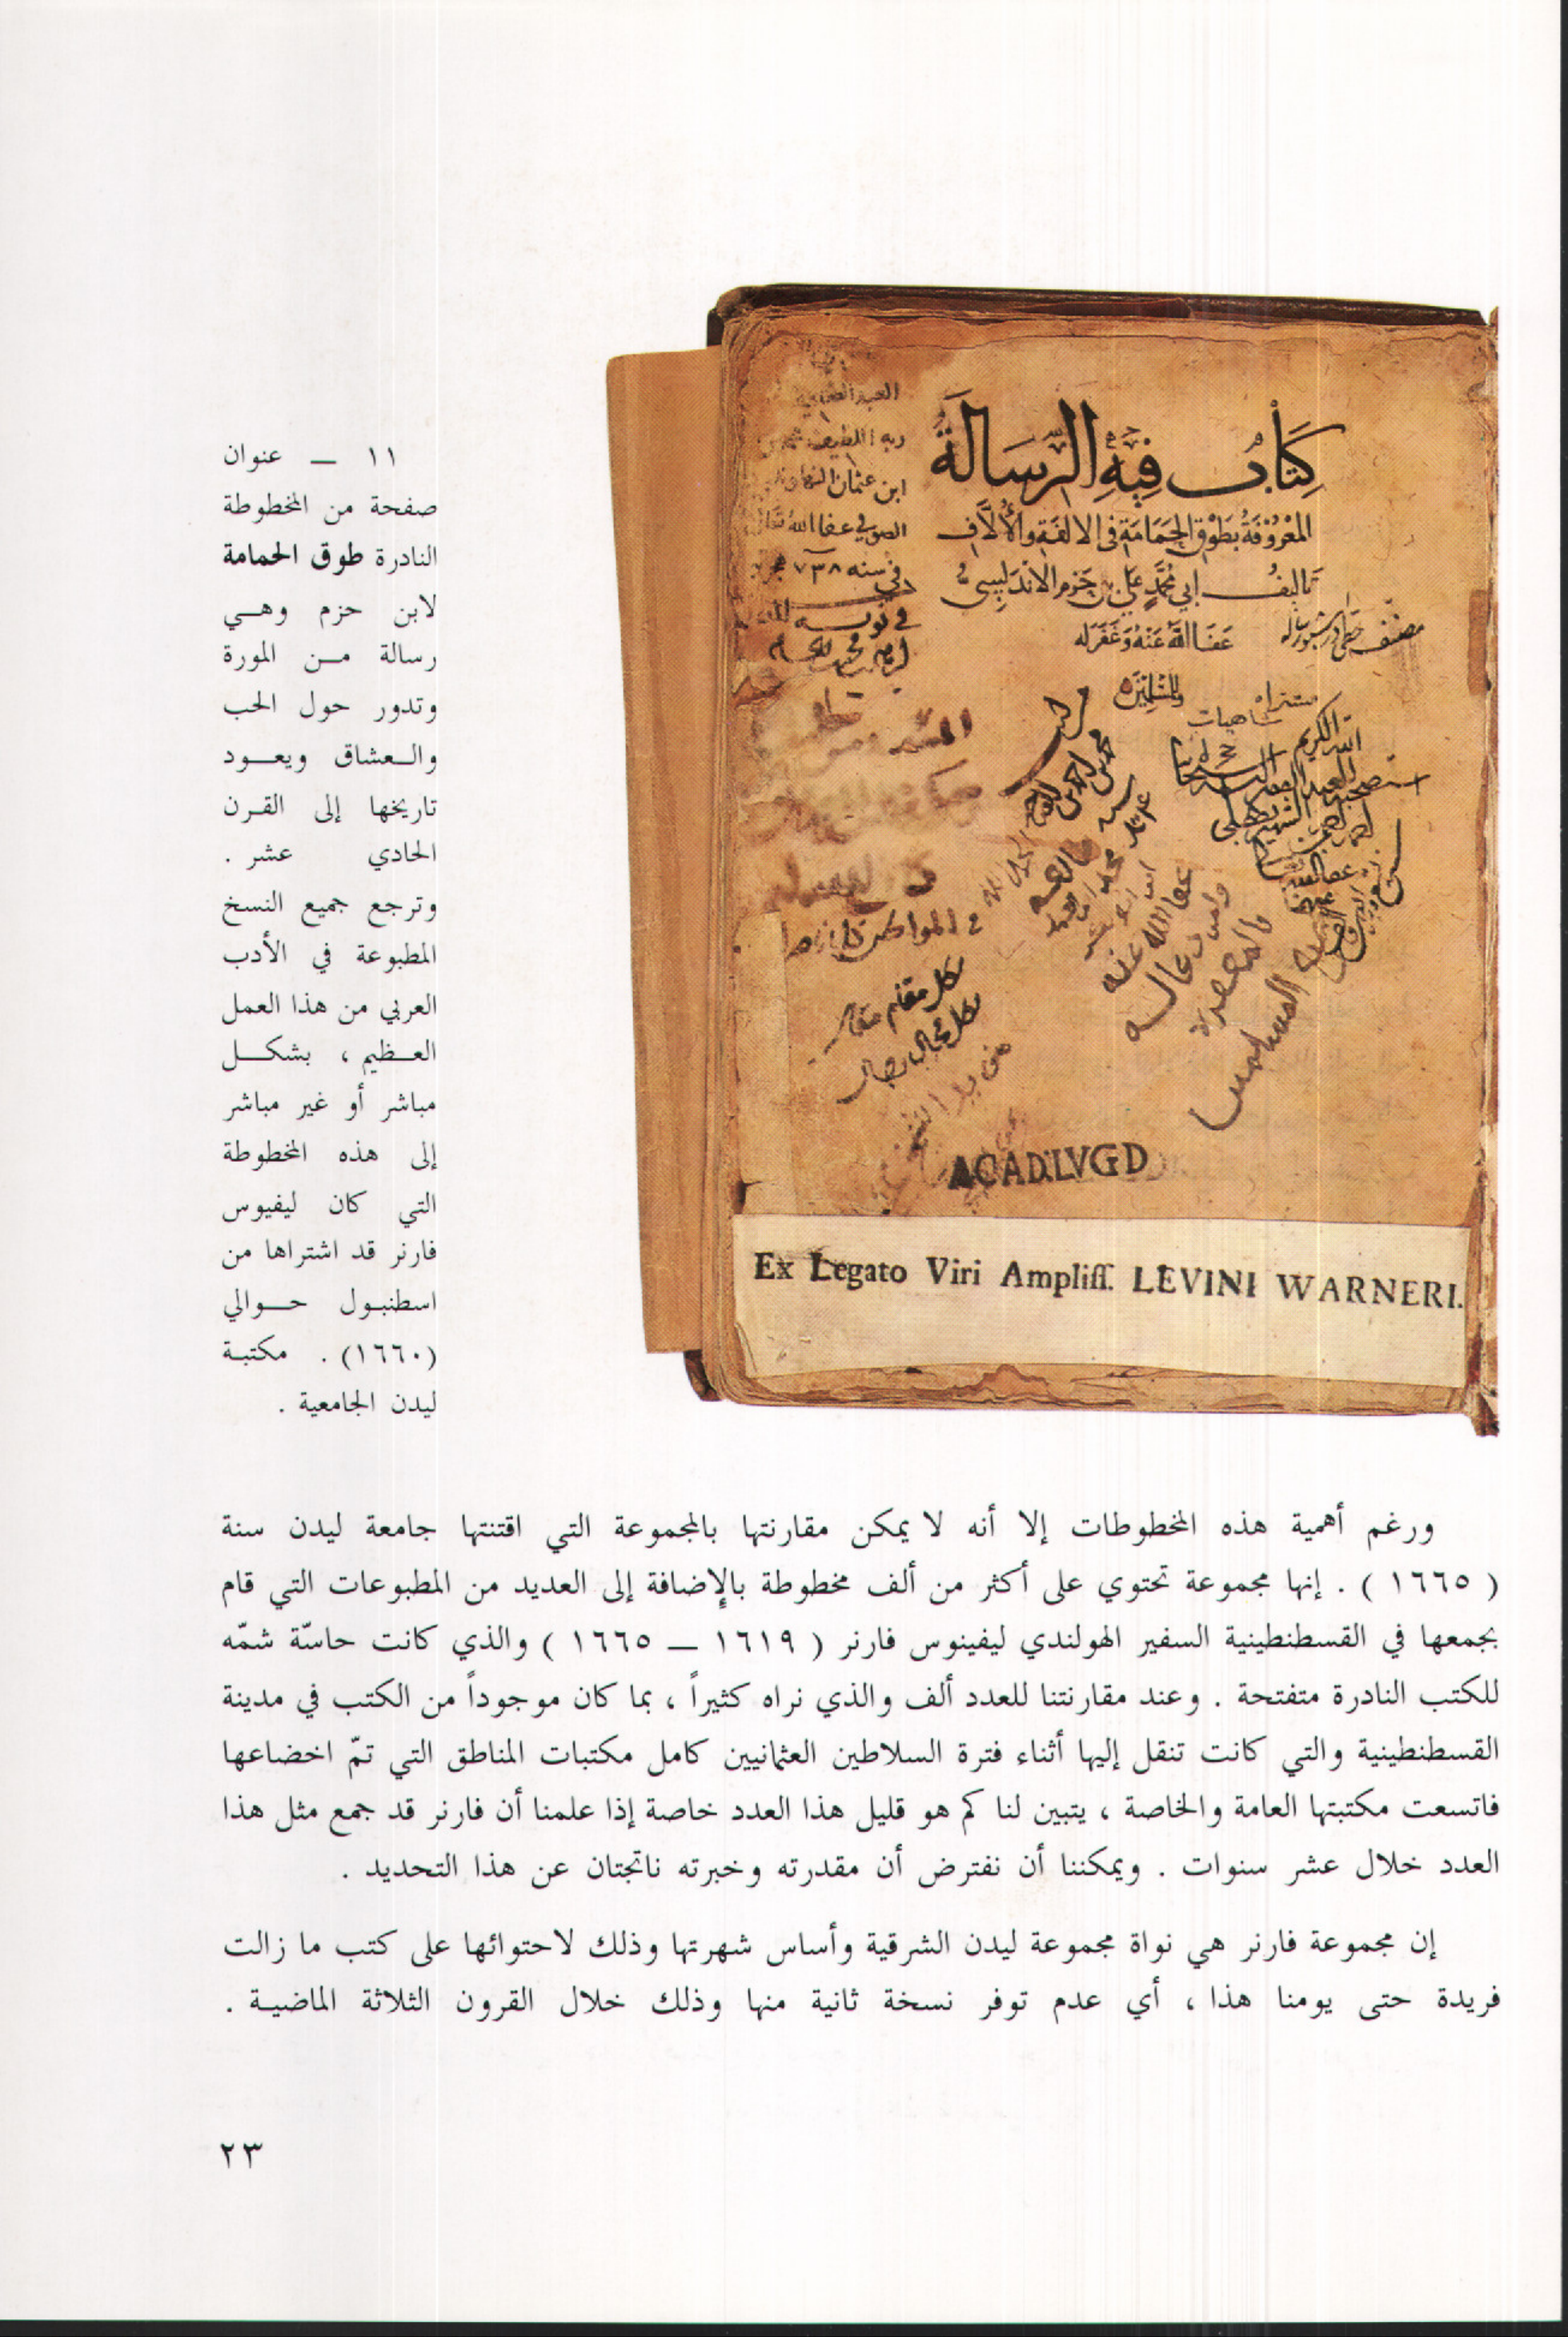 كِتَابٌ فِيهِ الرِّسَالَةُ
المَعْرُوفَةُ بِطَوْقِ الحَمَامَةِ فى الالفَةِ والأُلَّافِ
تَالِيفُ ابي مُحَمَّدٍ عَلِي بن حَزم الاَنْدَلُسِىُّ
عَفَا اللَّهُ عَنْهُ وَغَفَرَ لَه
وللمُسْلِمِينَ
ابن عثمان
الصوفي عفا الله
في سنه ٧٣٨
عفا الله عنه
ACAD. LVGD
Ex Legato Viri Ampliſſ. LEVINI WARNERI.
١١ — عنوان
صفحة من المخطوطة
النادرة طوق الحمامة
لابن حزم وهي
رسالة من المورة
وتدور حول الحب
والعشاق ويعود
تاريخها إلى القرن
الحادي عشر .
وترجع جميع النسخ
المطبوعة في الأدب
العربي من هذا العمل
العظيم ، بشكل
مباشر أو غير مباشر
إلى هذه المخطوطة
التي كان ليفيوس
فارنر قد اشتراها من
اسطنبول حوالي
(١٦٦٠) . مكتبة
ليدن الجامعية .
ورغم أهمية هذه المخطوطات إلا أنه لا يمكن مقارنتها بالمجموعة التي اقتنتها جامعة ليدن سنة
( ١٦٦٥ ) . إنها مجموعة تحتوي على أكثر من ألف مخطوطة بالإضافة إلى العديد من المطبوعات التي قام
بجمعها في القسطنطينية السفير الهولندي ليفينوس فارنر ( ١٦١٩ — ١٦٦٥ ) والذي كانت حاسّة شمّه
للكتب النادرة متفتحة . وعند مقارنتنا للعدد ألف والذي نراه كثيراً ، بما كان موجوداً من الكتب في مدينة
القسطنطينية والتي كانت تنقل إليها أثناء فترة السلاطين العثمانيين كامل مكتبات المناطق التي تمّ اخضاعها
فاتسعت مكتبتها العامة والخاصة ، يتبين لنا كم هو قليل هذا العدد خاصة إذا علمنا أن فارنر قد جمع مثل هذا
العدد خلال عشر سنوات . ويمكننا أن نفترض أن مقدرته وخبرته ناتجتان عن هذا التحديد .
إن مجموعة فارنر هي نواة مجموعة ليدن الشرقية وأساس شهرتها وذلك لاحتوائها على كتب ما زالت
فريدة حتى يومنا هذا ، أي عدم توفر نسخة ثانية منها وذلك خلال القرون الثلاثة الماضية .
٢٣